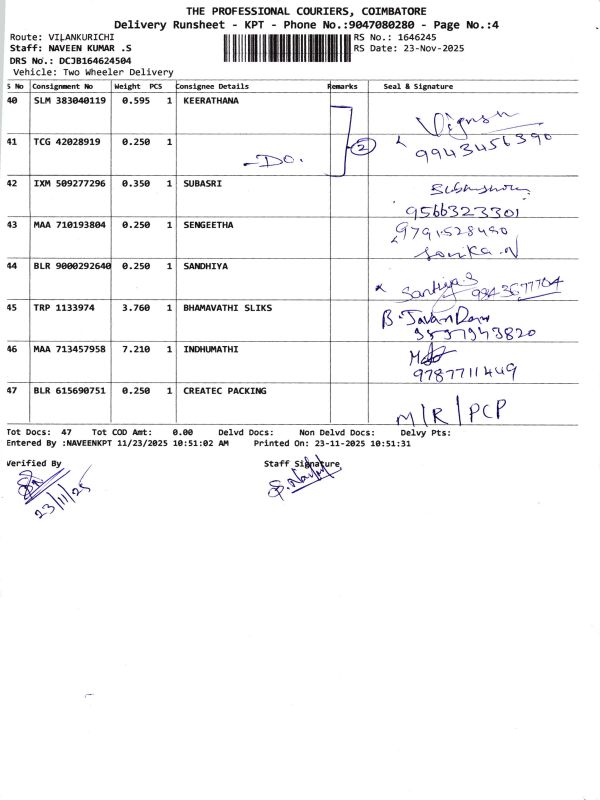 THE PROFESSIONAL COURIERS, COIMBATORE
Delivery Runsheet - KPT - Phone No.:9047080280 - Page No.:4
Route: VILANKURICHI RS No.: 1646245
Staff: NAVEEN KUMAR .S RS Date: 23-Nov-2025
DRS No.: DCJB164624504
Vehicle: Two Wheeler Delivery
S No Consignment No Weight PCS Consignee Details Remarks Seal & Signature
40 SLM 383040119 0.595 1 KEERATHANA
Vignesh
41 TCG 42028919 0.250 1
- Do. 2 9943456390
42 IXM 509277296 0.350 1 SUBASRI
9566323301
43 MAA 710193804 0.250 1 SENGEETHA 9791528490
44 BLR 9000292640 0.250 1 SANDHIYA
Santiya S 9943677704
45 TRP 1133974 3.760 1 BHAMAVATHI SLIKS
46 MAA 713457958 7.210 1 INDHUMATHI
9787711449
47 BLR 615690751 0.250 1 CREATEC PACKING
M/R/PCP
Tot Docs: 47 Tot COD Amt: 0.00 Delvd Docs: Non Delvd Docs: Delvy Pts:
Entered By :NAVEENKPT 11/23/2025 10:51:02 AM Printed On: 23-11-2025 10:51:31
Verified By Staff Signature
23/11/25